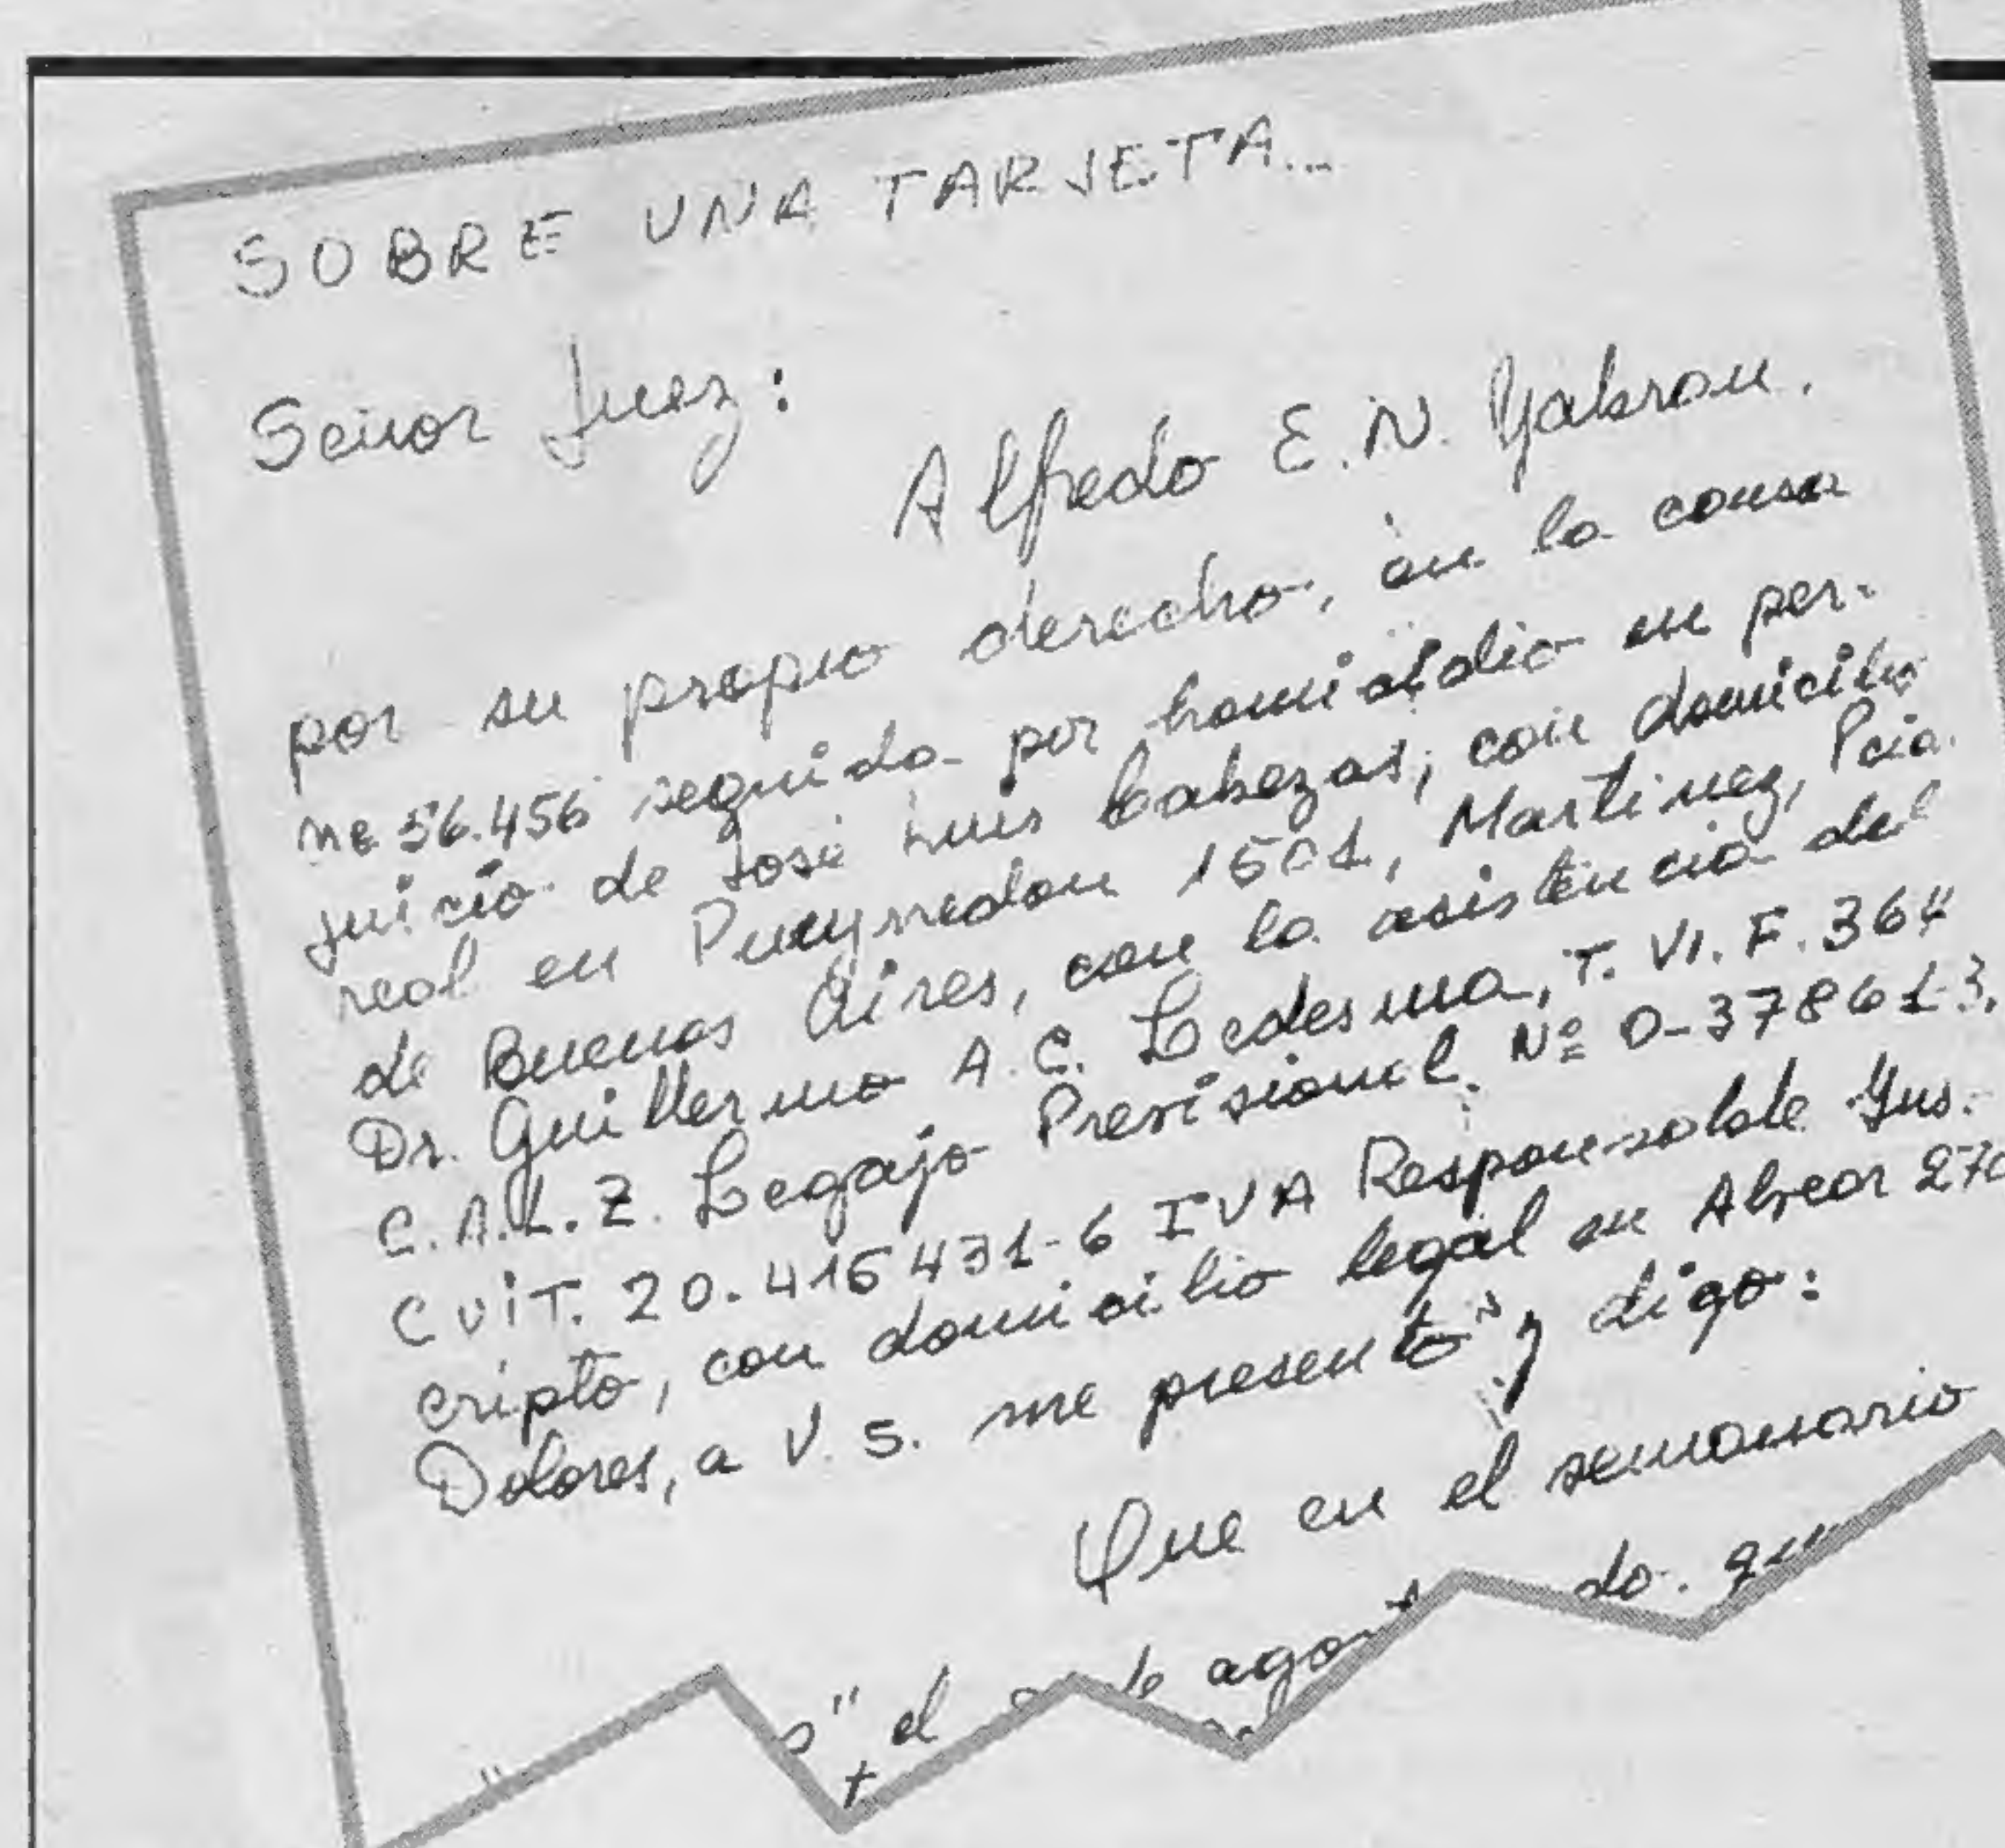 SOBRE UNA TARJETA...
Señor Juez:
Alfredo E. N. Yabran.
por su propio derecho, en la causa
nº 56.456 seguida por homicidio en per-
juicio de José Luis Cabezas, con domicilio
real en Pueyrredon 1501, Martinez, Pcia.
de Buenos Aires, con la asistencia del
Dr. Guillermo A. C. Ledesma, T. VI. F. 364
C.A.L.Z. Legajo Previsional Nº 0-37861-3,
CUIT. 20.415431-6 IVA Responsable Ins-
cripto, con domicilio legal en Alvear 270
Dolores, a V. S. me presento y digo:
Que en el semanario
" el de